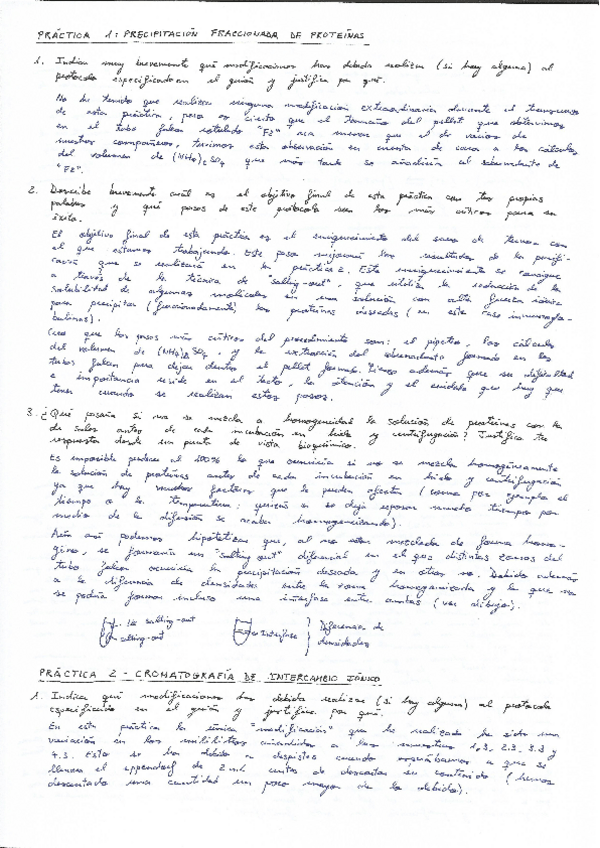 PRÁCTICA 1: PRECIPITACIÓN FRACCIONADA DE PROTEÍNAS
1. Indica muy brevemente qué modificaciones has debido realizar (si hay alguna) al
protocolo especificado en el guión y justifica por qué.
No he tenido que realizar ninguna modificación extraordinaria durante el transcurso
de esta práctica, pero es cierto que el tamaño del pellet que obtuvimos
en el tubo falcon rotulado "F2" era menor que el de varios de
nuestros compañeros, tuvimos esta observación en cuenta de cara a los cálculos
del volumen de (NH4)2SO4 que más tarde se añadiría al sobrenadante de
"F2".
2. Describe brevemente cuál es el objetivo final de esta práctica con tus propias
palabras y qué pasos de este protocolo son los más críticos para su
éxito.
El objetivo final de esta práctica es el enriquecimiento del suero de ternera con
el que estamos trabajando. Este paso mejorará los resultados de la purifi-
cación que se realizará en la práctica 2. Este enriquecimiento se consigue
a través de la técnica de "salting-out", que utiliza la reducción de la
solubilidad de algunas moléculas en una solución con alta fuerza iónica
para precipitar (fraccionadamente) las proteínas deseadas (en este caso inmunoglo-
bulinas).
Creo que los pasos más críticos del procedimiento son: el pipeteo, los cálculos
del volumen de (NH4)2SO4, y la extracción del sobrenadante formado en los
tubos falcon para dejar dentro el pellet formado. Creo además que su dificultad
e importancia reside en el tacto, la atención y el cuidado que hay que
tener cuando se realizan estos pasos.
3. ¿Qué pasaría si no se mezcla a homogeneidad la solución de proteínas con la
de sales antes de cada incubación en hielo y centrifugación? Justifica tu
respuesta desde un punto de vista bioquímico.
Es imposible predecir al 100% lo que ocurriría si no se mezcla homogéneamente
la solución de proteínas antes de cada incubación en hielo y centrifugación
ya que hay muchos factores que le pueden afectar (como por ejemplo el
tiempo o la temperatura: quizás si se deja reposar mucho tiempo por
medio de la difusión se acaba homogeneizando).
Aún así podemos hipotetizar que, al no estar mezclado de forma homo-
génea, se formaría un "salting out" diferencial en el que distintas zonas del
tubo falcon ocurriría la precipitación deseada y en otras no. Debido además
a la diferencia de densidades entre la zona homogeneizada y la que no
se podría formar incluso una interfase entre ambas (ver dibujo).
no salting-out
salting-out
interfase
Diferencia de
densidades
PRÁCTICA 2 - CROMATOGRAFÍA DE INTERCAMBIO IÓNICO
1. Indica qué modificaciones has debido realizar (si hay alguna) al protocolo
especificado en el guión y justifica por qué.
En esta práctica la única "modificación" que he realizado ha sido una
variación en los mililitros añadidos a las muestras 1.3, 2.3, 3.3 y
4.3. Esto se ha debido a despistes cuando esperábamos a que se
llenara el eppendorf de 2 mL antes de descartar su contenido (hemos
descartado una cantidad un poco mayor de la debida).